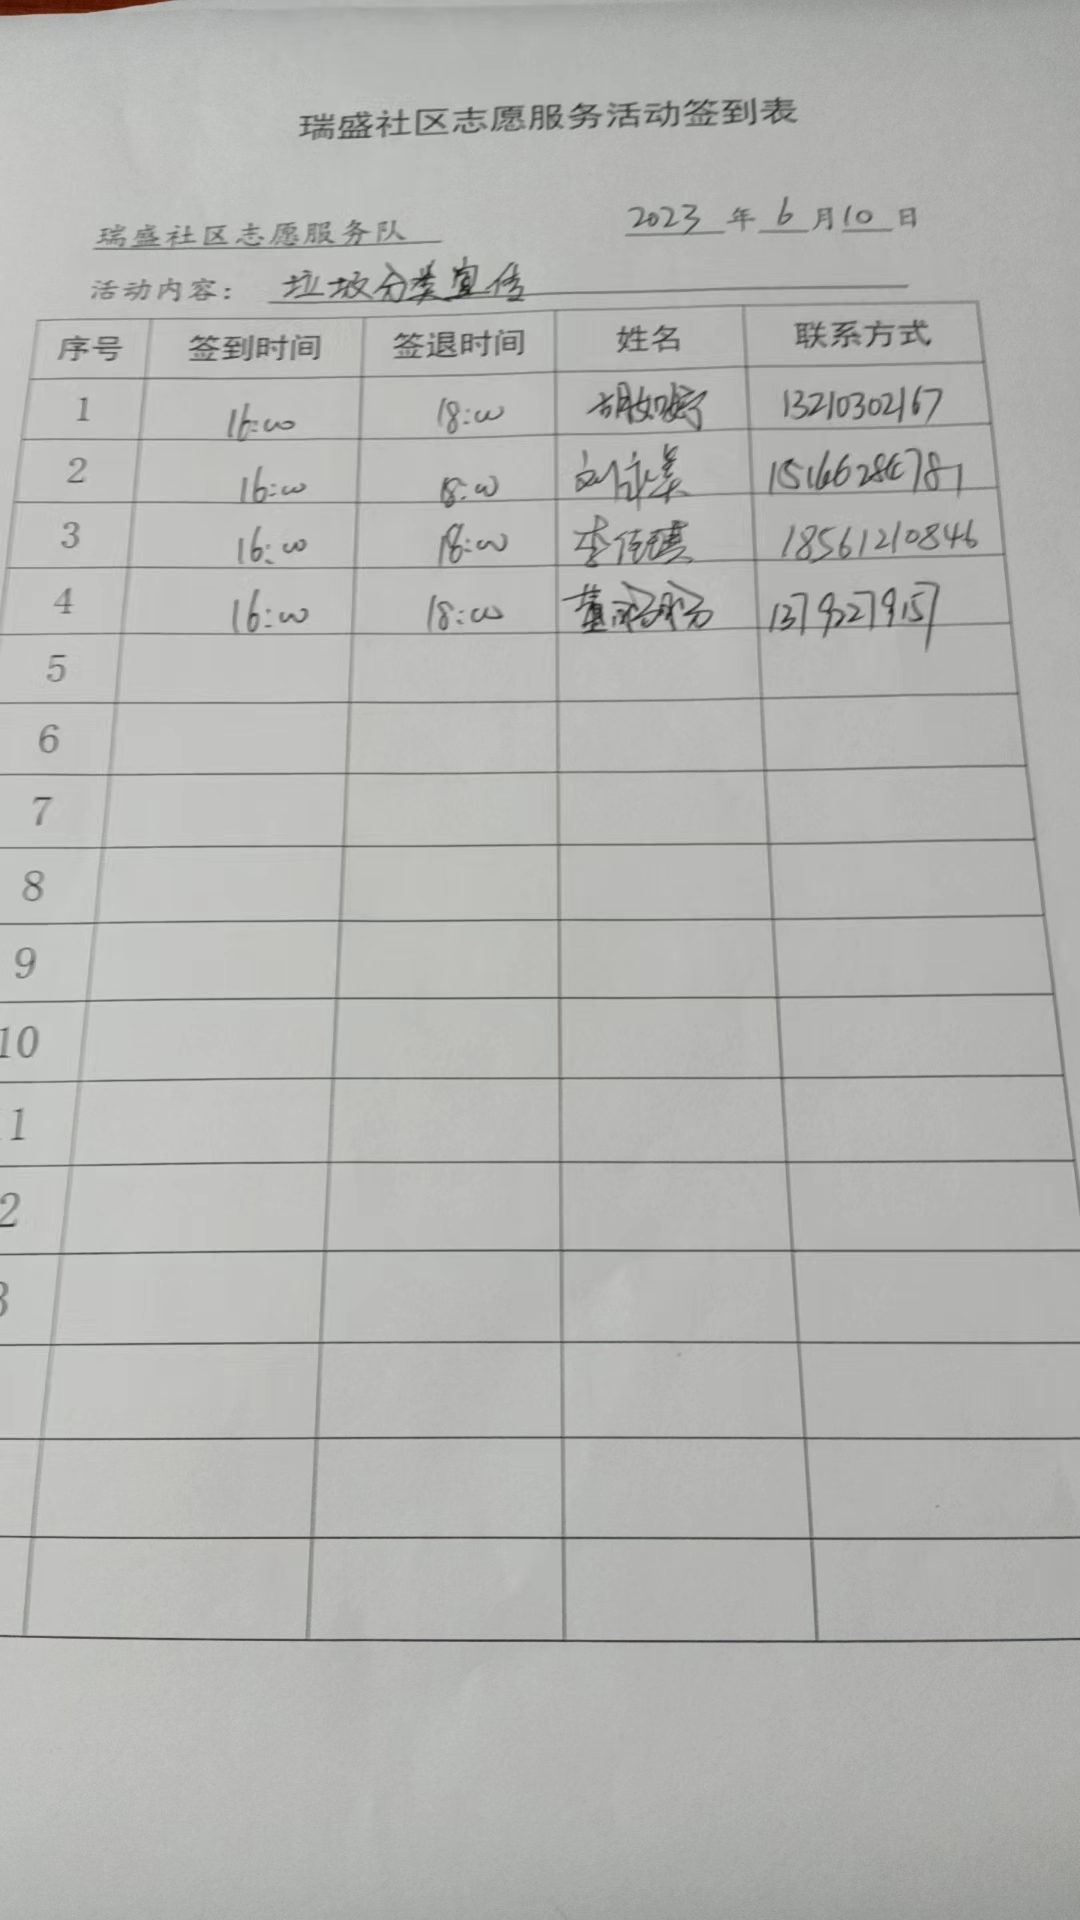 瑞盛社区志愿服务活动签到表
瑞盛社区志愿服务队 2023 年 6 月 10 日
活动内容： 垃圾分类宣传
序号 签到时间 签退时间 姓名 联系方式
1 16:00 18:00 13210302167
2 16:00 18:00 刘 15166284781
3 16:00 18:00 李佳琪 18561210846
4 16:00 18:00 董 13792279157
5
6
7
8
9
10
1
2
3